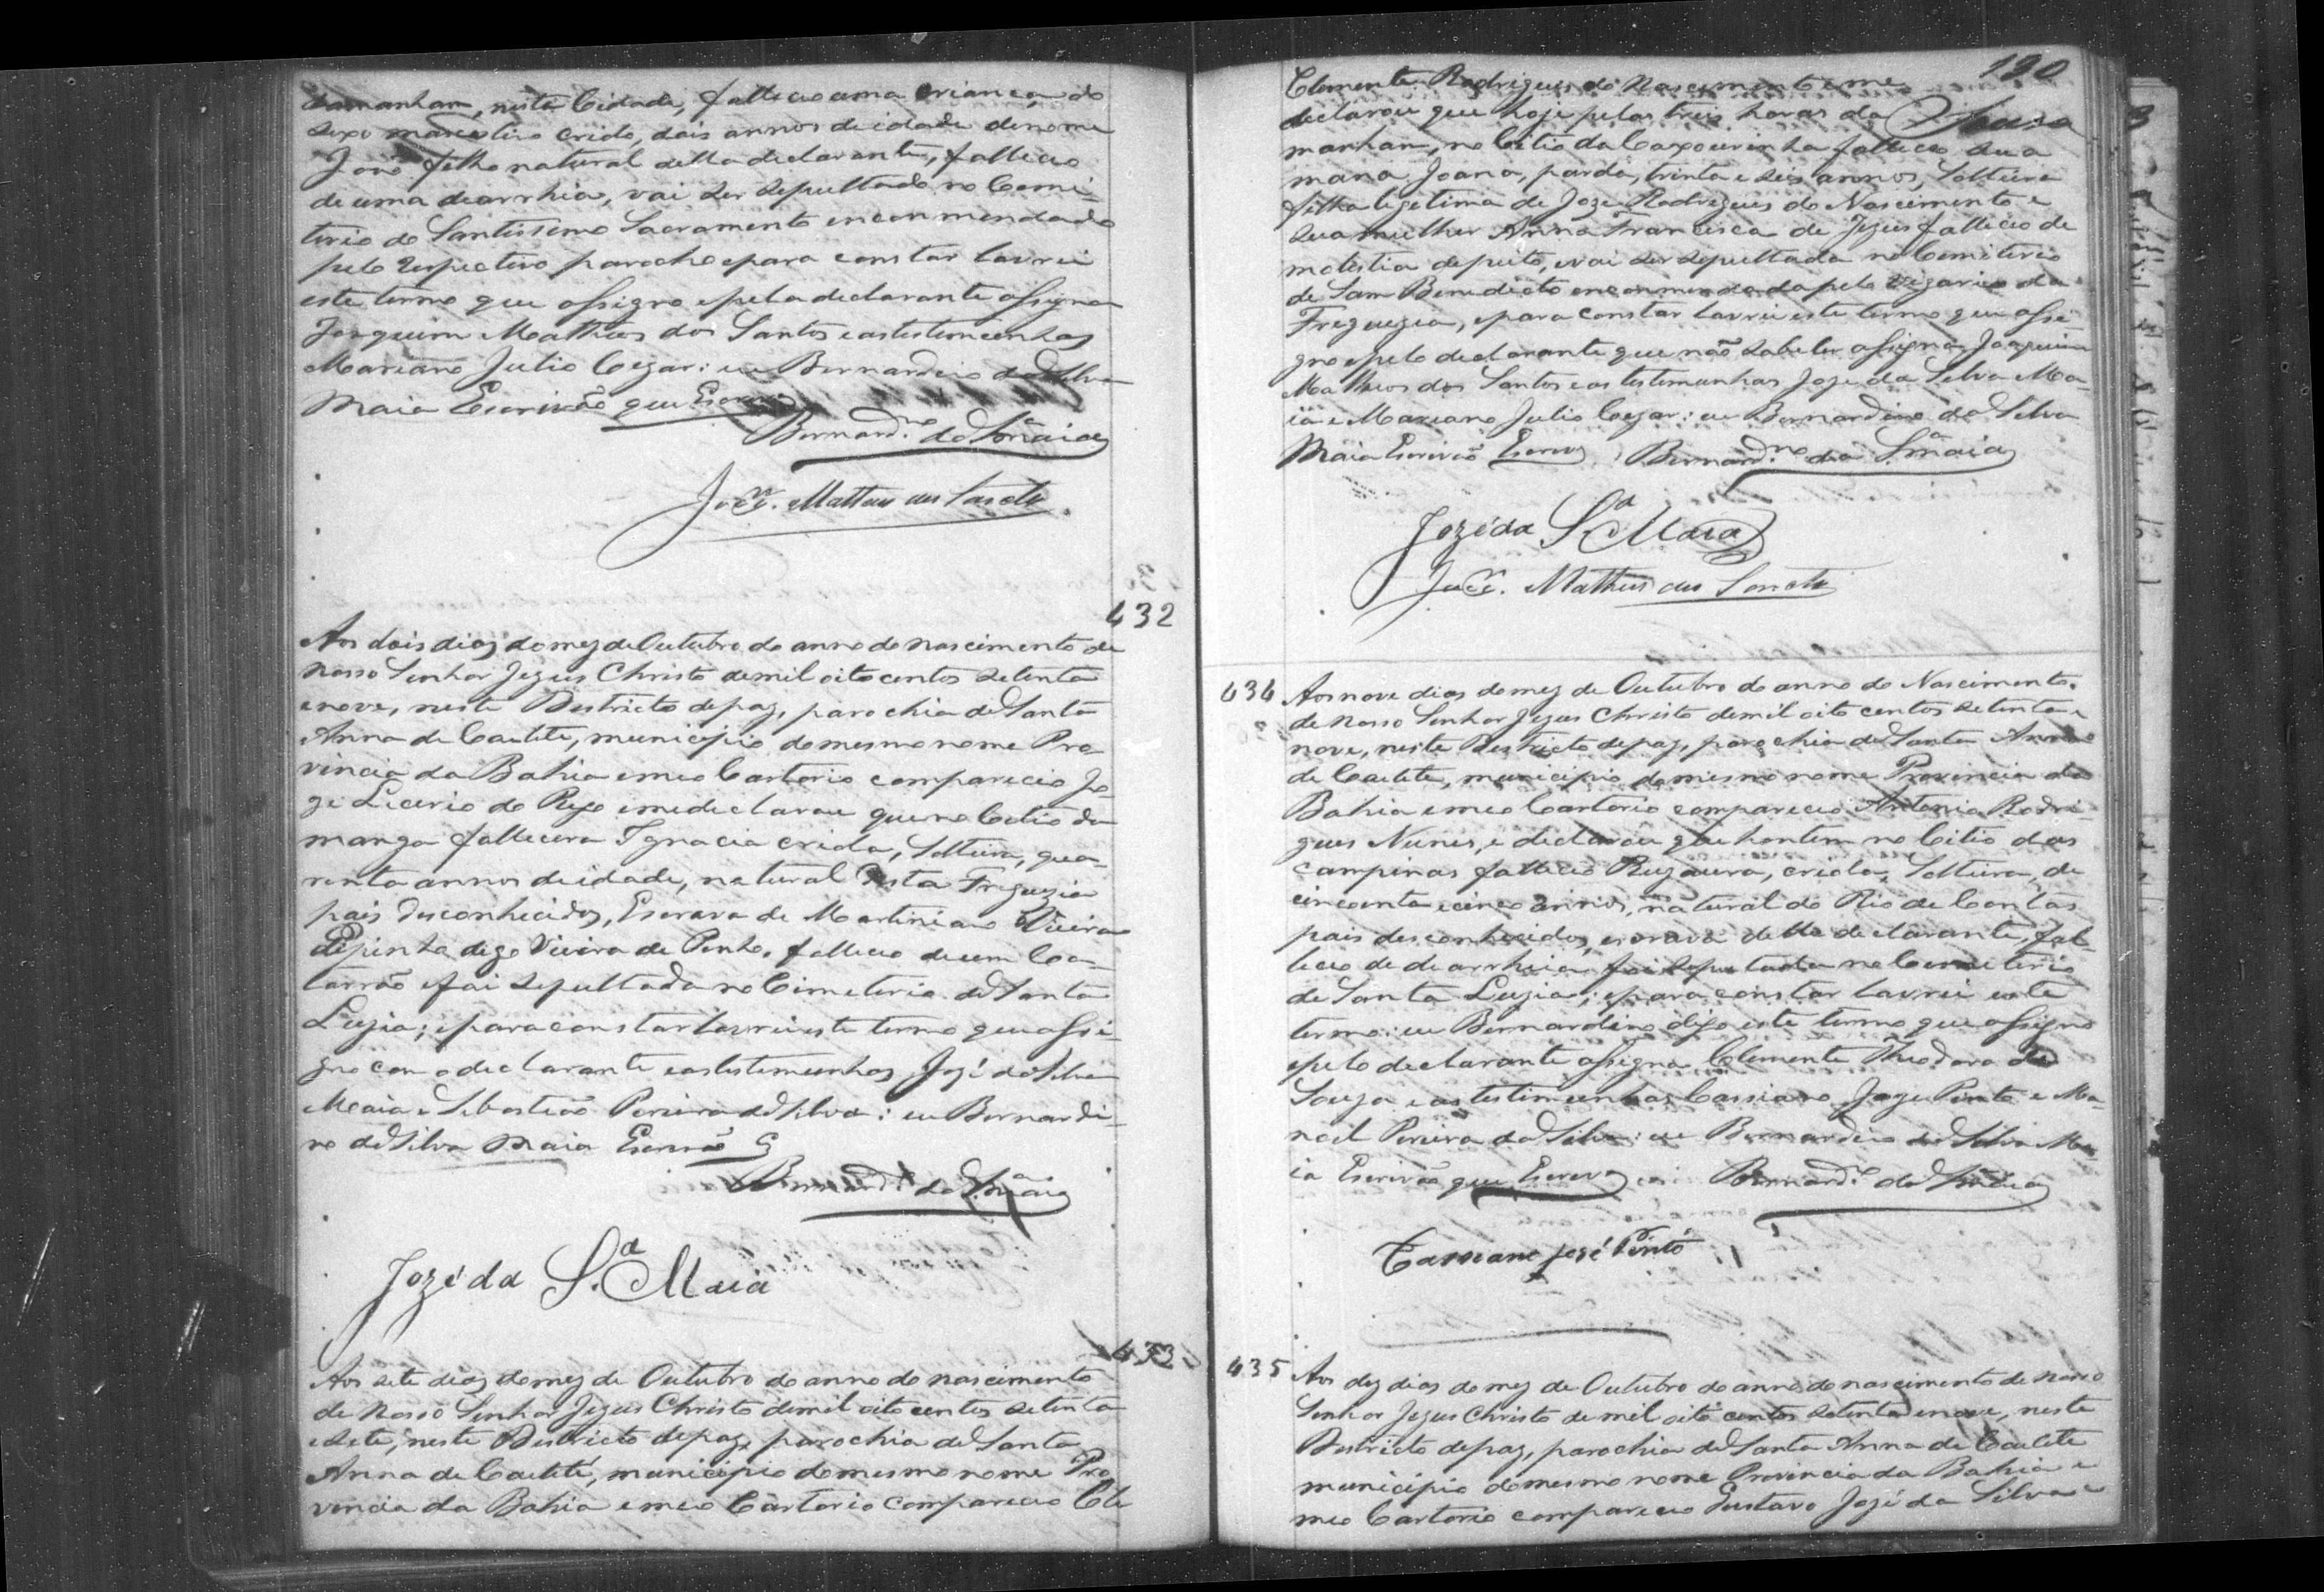 damanham, nesta Cidade, falleceo uma crianca, do
sexo masculino criolo, dois annos de idade de nome
João filho natural della declarante, falleceo
de uma diarrhia, vai ser sepultado no Cemi-
terio do Santissimo Sacramento encommendado
pelo respectivo parocho e para constar lavrei
este termo que assigno e pela declarante assigna
Joaquim Matheos dos Santos e as testemunhas
Mariano Julio Cezar: eu Bernardino da Silva
Maia Escrivão que Escrevi
Bernard.no da S.a Maia
Joaq.m Matheus dos Santos
432
Aos dois dias do mez de Outubro do anno do nascimento de
Nosso Senhor Jezus Christo de mil oito centos setenta
e nove, neste Destricto de paz, parochia de Santa
Anna de Caetite, municipio do mesmo nome Pro-
vincia da Bahia e meo Cartorio compareceo Jo-
ze Licerio do Rego e me declarou que no Citio da
manga fallecera Ignacia criola, Solteira, qua-
renta annos de idade, natural desta Freguezia
pais desconhecidos, Escrava de Martiniano Vieira
de pinha digo Vieira de Pinho, falleceo de um Ca-
tarrão e foi sepultada no Cimeterio de Santa
Luzia; e para constar lavrei este termo que assi-
gno com o declarante e as testemunhas José da Silva
Maia e Sebastião Pereira da Silva: eu Bernardi-
no da Silva Maia Escrivão
Bernard.no da S.a Maia
Jozé da S.a Maia
433
Aos sete dias do mez de Outubro do anno do nascimento
de Nosso Senhor Jezus Christo de mil oito centos setenta
e sete, neste Destricto de paz, parochia de Santa
Anna de Caetité, municipio do mesmo nome Pro
vincia da Bahia e meo Cartorio compareceo Cle
190
Clemente Rodrigues do Nascimento e me
declarou que hoje pelas treis horas da
manham, no Citio da Caxoeirinha falleceo sua
mana Joana, parda, trinta e seis annos, Solteira
filha legitima de Joze Rodrigues do Nascimento e
sua mulher Anna Francisca de Jezus falleceo de
molestia de peito, e vai ser sepultada no Cemiterio
de Sam Benedicto encommendada pelo Vigario da
Freguezia, e para constar lavrei este termo que assi-
gno e pelo declarante que não sabe ler assigna Joaquim
Matheos dos Santos e as testemunhas Joze da Silva Ma-
ia e Mariano Julio Cezar: eu Bernardino da Silva
Maia Escrivão Escrevi Bernard.no da S.a Maia
Jozé da S.a Maia
Joaq.m Matheus dos Santos
434 Aos nove dias do mez de Outubro do anno do Nascimento
de Nosso Senhor Jezus Christo de mil oito centos setenta e
nove, neste Destricto de paz, parochia de Santa Anna
de Caetite, municipio do mesmo nome Provincia da
Bahia e meo Cartorio compareceo Antonio Rodri-
gues Nunes, e declarou que hontem no Citio das
Campinas falleceo Rozaura, criola, Solteira, de
cincoenta e cinco annos, natural do Rio de Contas
pais desconhecidos, escrava delle declarante, fal-
leceo de diarrhia foi sepultada no Cemiterio
de Santa Luzia; e para constar lavrei este
termo: eu Bernardino digo este termo que assigno
e pelo declarante assigna Clemente Theodoro de
Souza e as testemunhas Cassiano Joze Pinto e Ma-
noel Pereira da Silva: eu Bernardino da Silva Ma-
ia Escrivão que Escrevi Bernard.no da S.a Maia
Cassiano José Pinto
435 Aos dez dias do mez de Outubro do anno do nascimento de Nosso
Senhor Jezus Christo de mil oito centos setenta e nove, neste
Destricto de paz, parochia de Santa Anna de Caetite
municipio do mesmo nome Provincia da Bahia e
meo Cartorio compareceo Gustavo José da Silva e